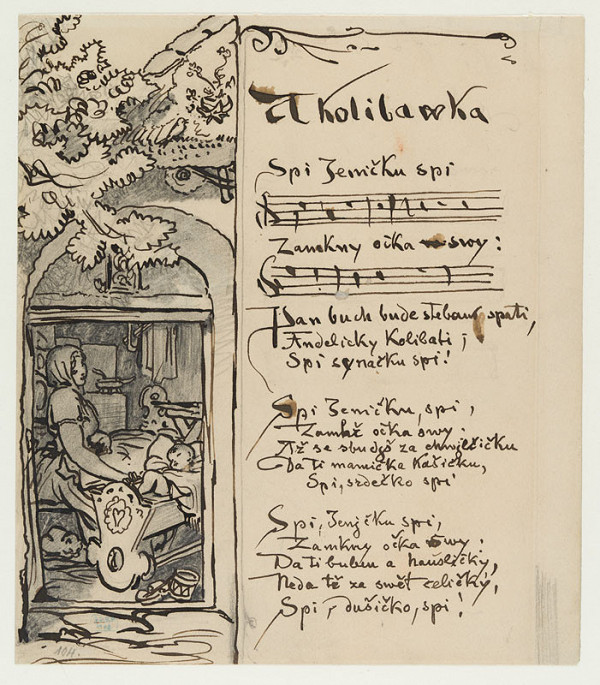 U Kolibawka
Spi Jeničku spi
Zamkny očka swy:
Pan buch bude stebau spati,
Andelicky Kolibati;
Spi synačku spi!
Spi Jeničku, spi,
očka swy:
Až se sbudyš za chwilčičku
Da ti mamička Kašičku,
Spi, srdečko spi
Spi, Jenjčku spi,
Zamkny očka swy:
Da ti buben a
Neda tě za swět celičky,
Spi, dušičko, spi!
104.